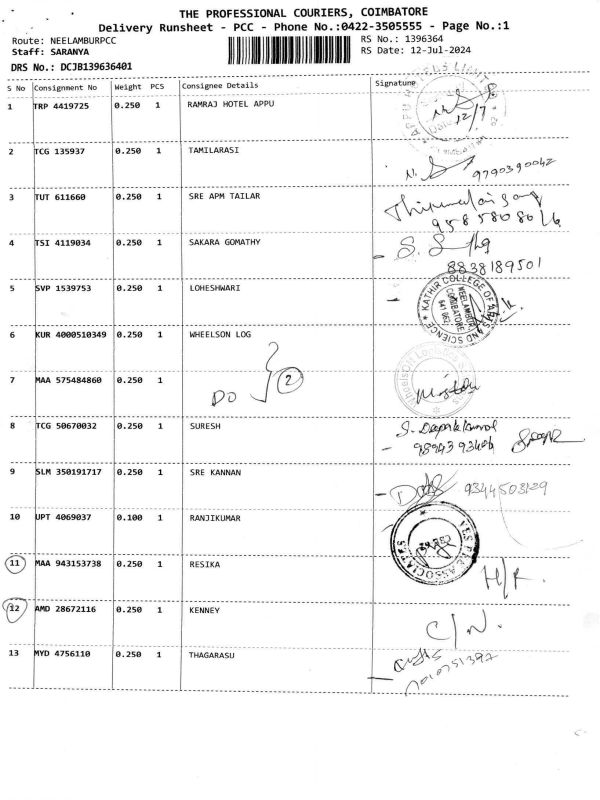 THE PROFESSIONAL COURIERS, COIMBATORE
Delivery Runsheet - PCC - Phone No.:0422-3505555 - Page No.:1
Route: NEELAMBURPCC RS No.: 1396364
Staff: SARANYA RS Date: 12-Jul-2024
DRS No.: DCJB139636401
S No Consignment No Weight PCS Consignee Details Signature
1 TRP 4419725 0.250 1 RAMRAJ HOTEL APPU
12/7
2 TCG 135937 0.250 1 TAMILARASI
9790390042
3 TUT 611660 0.250 1 SRE APM TAILAR
4 TSI 4119034 0.250 1 SAKARA GOMATHY
8838189501
5 SVP 1539753 0.250 1 LOHESHWARI
KATHIR COLLEGE OF ARTS AND SCIENCE
NEELAMBUR
COIMBATORE
641 062
6 KUR 4000510349 0.250 1 WHEELSON LOG
7 MAA 575484860 0.250 1
DO 2
8 TCG 50670032 0.250 1 SURESH
9 SLM 350191717 0.250 1 SRE KANNAN
9344503129
10 UPT 4069037 0.100 1 RANJIKUMAR
ASSOCIATES
11 MAA 943153738 0.250 1 RESIKA
H/R.
12 AMD 28672116 0.250 1 KENNEY
C/N.
13 MYD 4756110 0.250 1 THAGARASU
7010751397